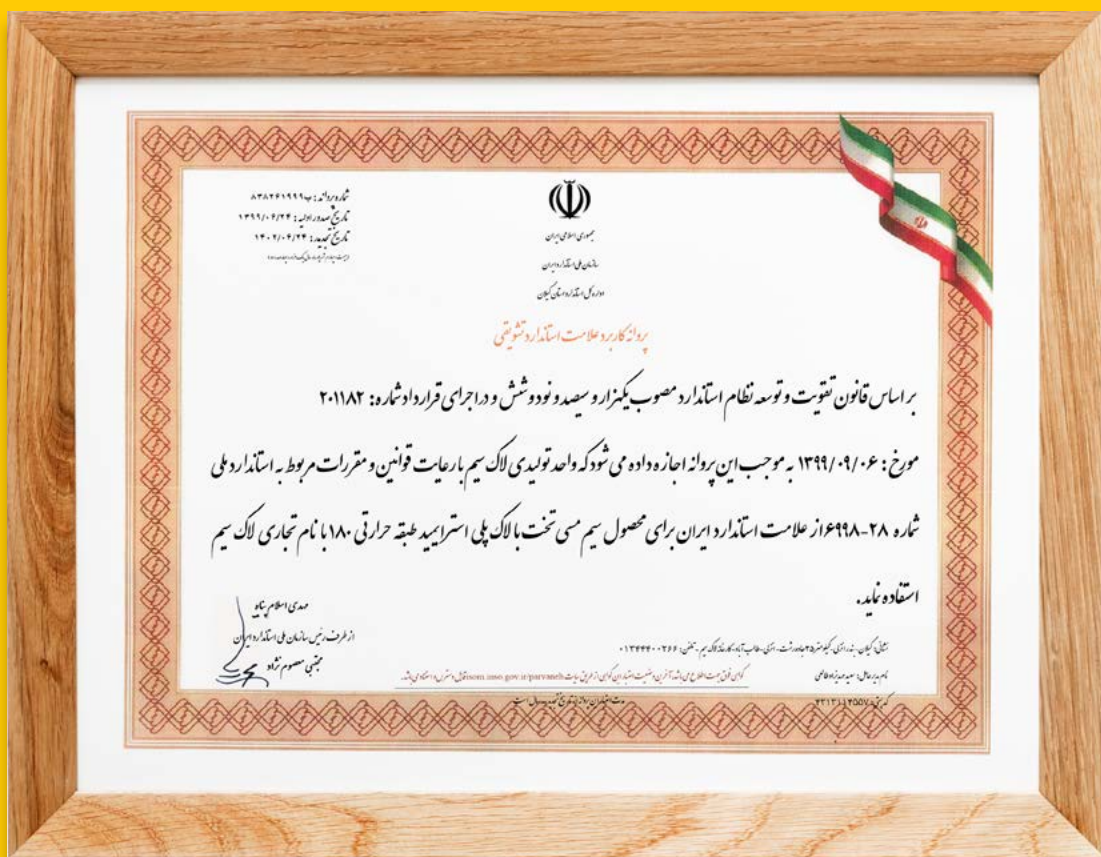 شماره پروانه: ب۸۳۸۲۶۱۹۹۹
تاریخ صدور اولیه: ۱۳۹۹/۰۶/۲۴
تاریخ تجدید: ۱۴۰۲/۰۶/۲۴
جمهوری اسلامی ایران
سازمان ملی استاندارد ایران
اداره کل استاندارد استان گیلان
پروانه کاربرد علامت استاندارد تشویقی
بر اساس قانون تقویت و توسعه نظام استاندارد مصوب یکهزار و سیصد و نود و شش و در اجرای قرارداد شماره: ۲۰۱۱۸۲
مورخ: ۱۳۹۹/۰۹/۰۶ به موجب این پروانه اجازه داده می شود که واحد تولیدی لاک سیم با رعایت قوانین و مقررات مربوط به استاندارد ملی
شماره ۲۸-۶۹۹۸ از علامت استاندارد ایران برای محصول سیم مسی تخت با لاک پلی استرایمید طبقه حرارتی ۱۸۰ با نام تجاری لاک سیم
استفاده نماید.
مهدی اسلام پناه
از طرف رئیس سازمان ملی استاندارد ایران
مجتبی معصوم نژاد
نشانی: گیلان - بندر انزلی - کیلومتر ۲۵ جاده رشت - انزلی - طالب آباد - کارخانه لاک سیم - تلفن: ۰۱۳۴۴۴۰۰۲۶۶
نام مدیرعامل: سعید
گواهی فوق جهت اطلاع می باشد، آخرین وضعیت اعتبار این گواهی از طریق سایت isom.inso.gov.ir/parvaneh قابل دسترس و استفاده می باشد.
مدت اعتبار این پروانه از تاریخ تجدید سال است